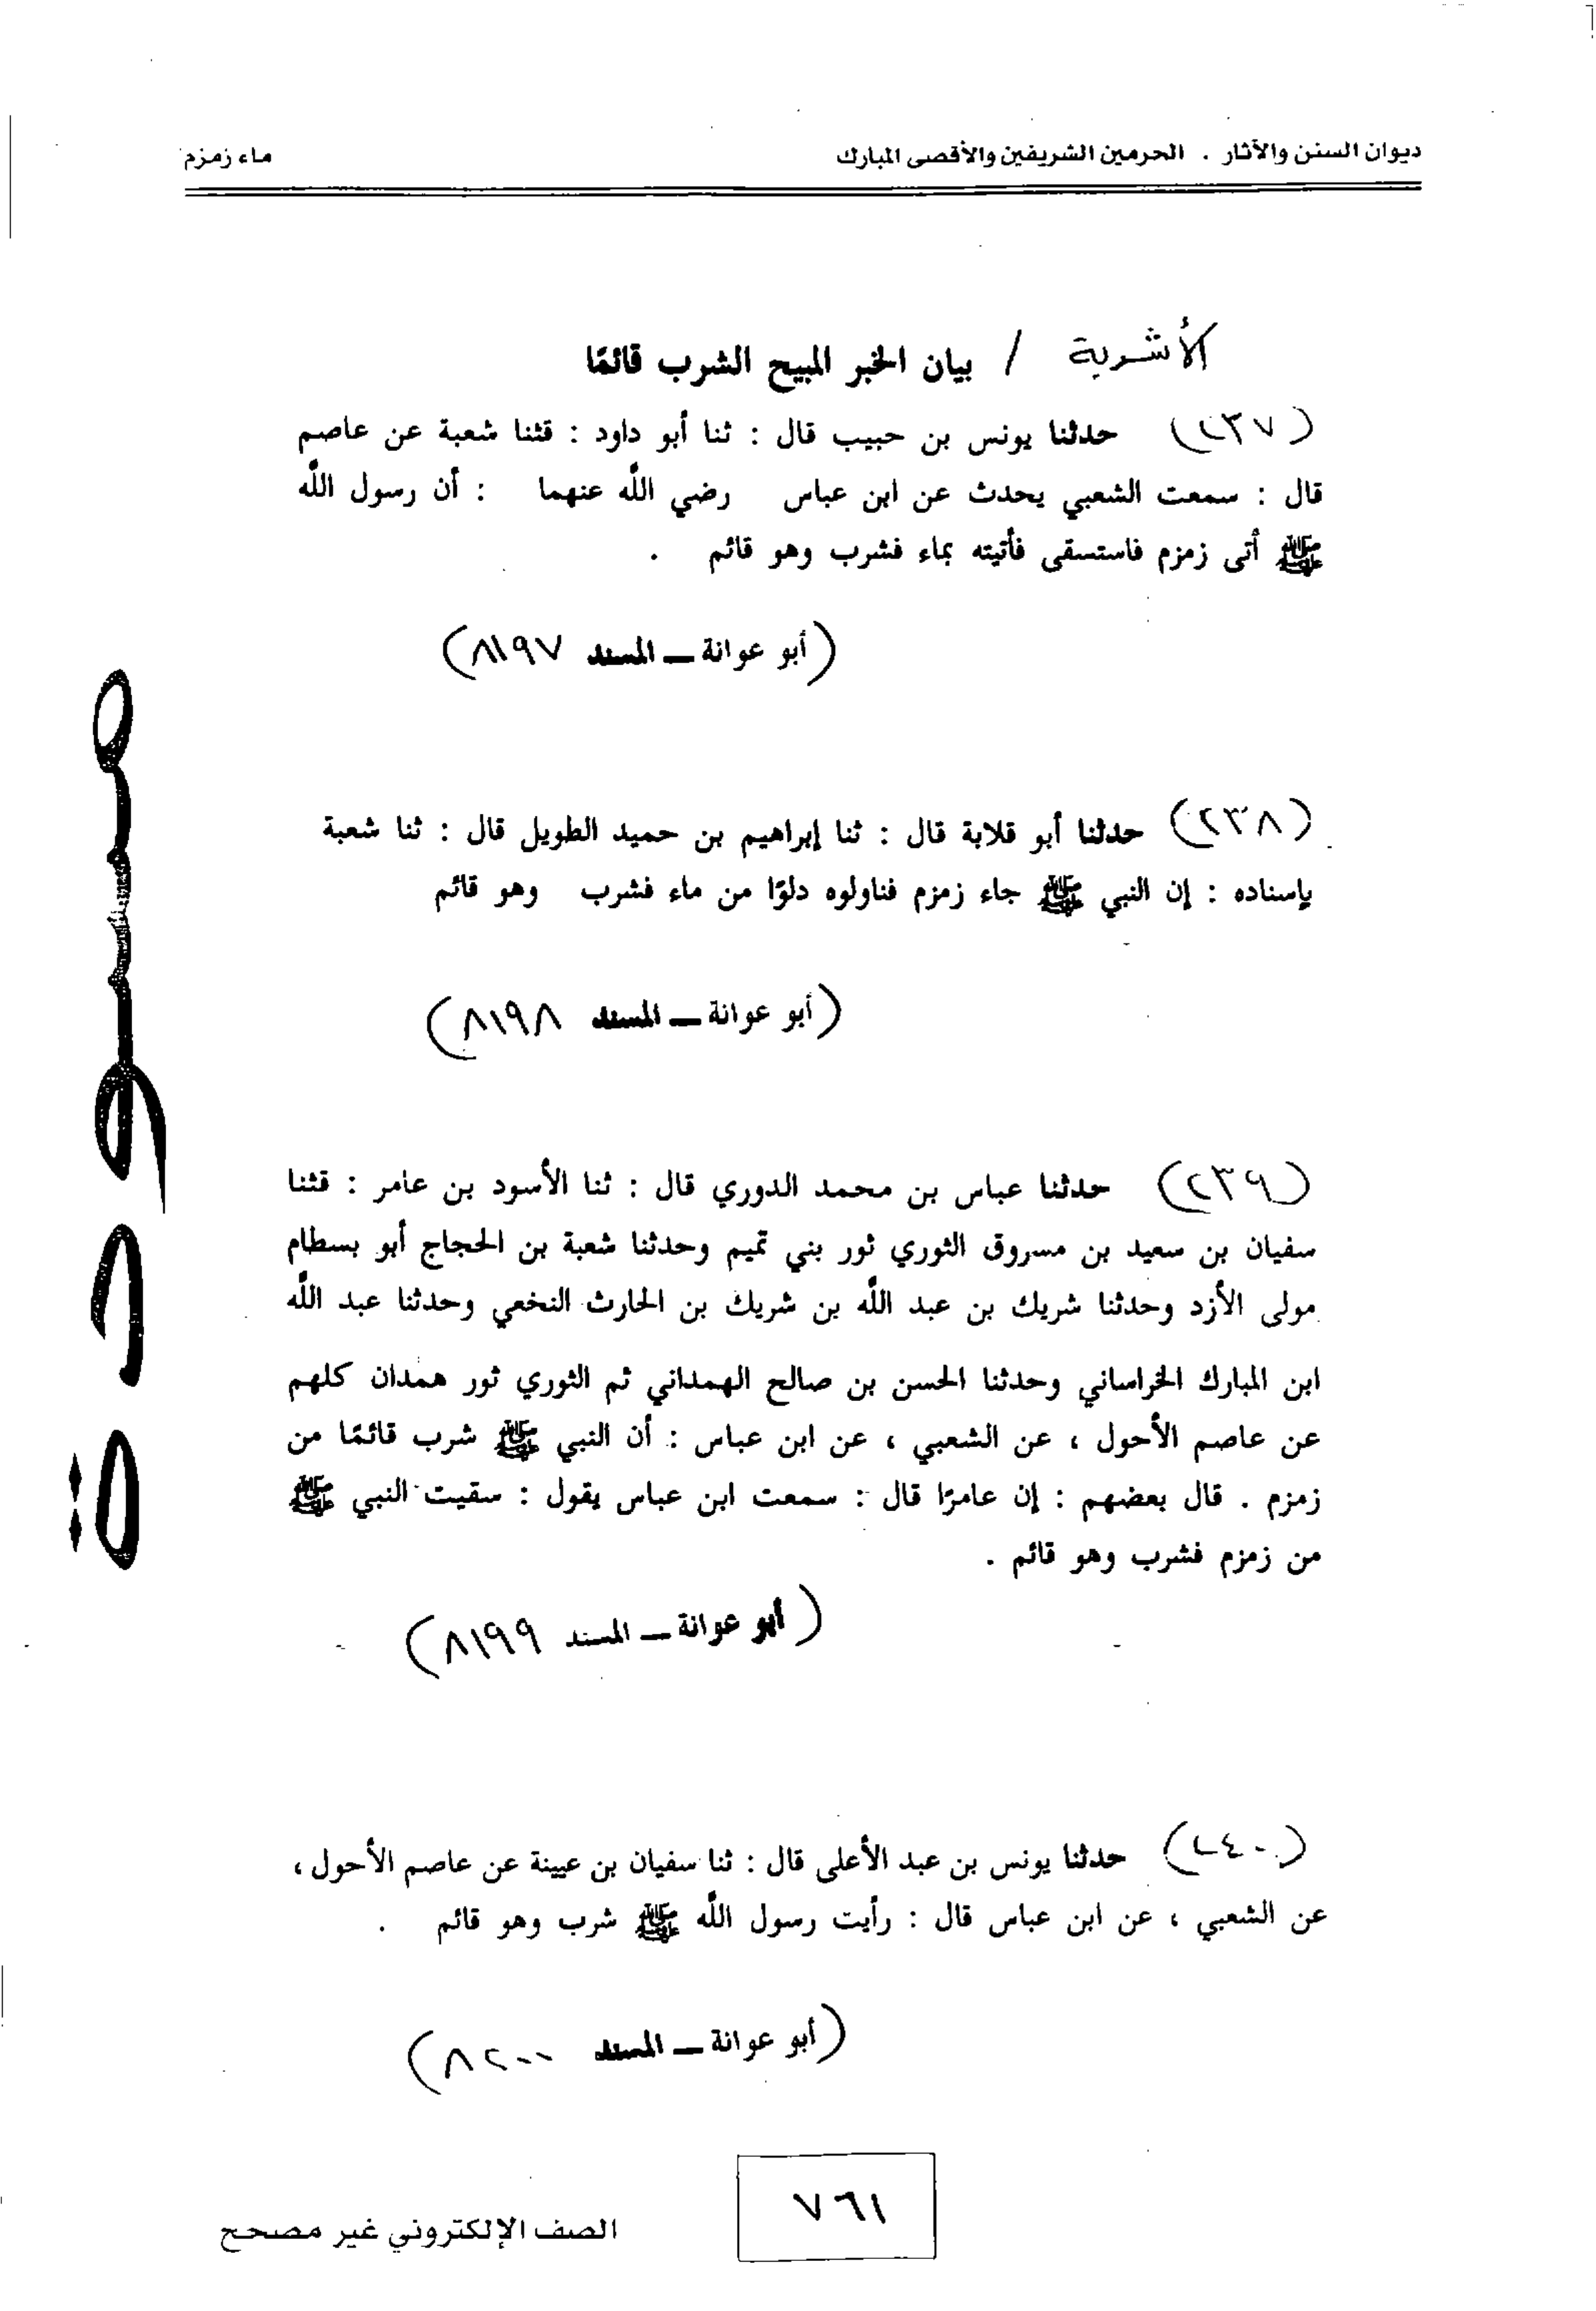 ديوان السنن والآثار . الحرمين الشريفين والأقصى المبارك
ماء زمزم
الأشربة / بيان الخبر المبيح الشرب قائمًا
(٢٣٧) حدثنا يونس بن حبيب قال : ثنا أبو داود : قثنا شعبة عن عاصم
قال : سمعت الشعبي يحدث عن ابن عباس رضي الله عنهما : أن رسول الله
ﷺ أتى زمزم فاستسقى فأتيته بماء فشرب وهو قائم .
(أبو عوانة ــ المسند ٨١٩٧)
(٢٣٨) حدثنا أبو قلابة قال : ثنا إبراهيم بن حميد الطويل قال : ثنا شعبة
بإسناده : إن النبي ﷺ جاء زمزم فناولوه دلوًا من ماء فشرب وهو قائم
(أبو عوانة ــ المسند ٨١٩٨)
(٢٣٩) حدثنا عباس بن محمد الدوري قال : ثنا الأسود بن عامر : قثنا
سفيان بن سعيد بن مسروق الثوري ثور بني تميم وحدثنا شعبة بن الحجاج أبو بسطام
مولى الأزد وحدثنا شريك بن عبد الله بن شريك بن الحارث النخعي وحدثنا عبد الله
ابن المبارك الخراساني وحدثنا الحسن بن صالح الهمداني ثم الثوري ثور همدان كلهم
عن عاصم الأحول ، عن الشعبي ، عن ابن عباس : أن النبي ﷺ شرب قائمًا من
زمزم . قال بعضهم : إن عامرًا قال : سمعت ابن عباس يقول : سقيت النبي ﷺ
من زمزم فشرب وهو قائم .
(أبو عوانة ــ المسند ٨١٩٩)
(٢٤٠) حدثنا يونس بن عبد الأعلى قال : ثنا سفيان بن عيينة عن عاصم الأحول ،
عن الشعبي ، عن ابن عباس قال : رأيت رسول الله ﷺ شرب وهو قائم .
(أبو عوانة ــ المسند ٨٢٠٠)
٧٦١
الصف الإلكتروني غير مصحح
مسودة